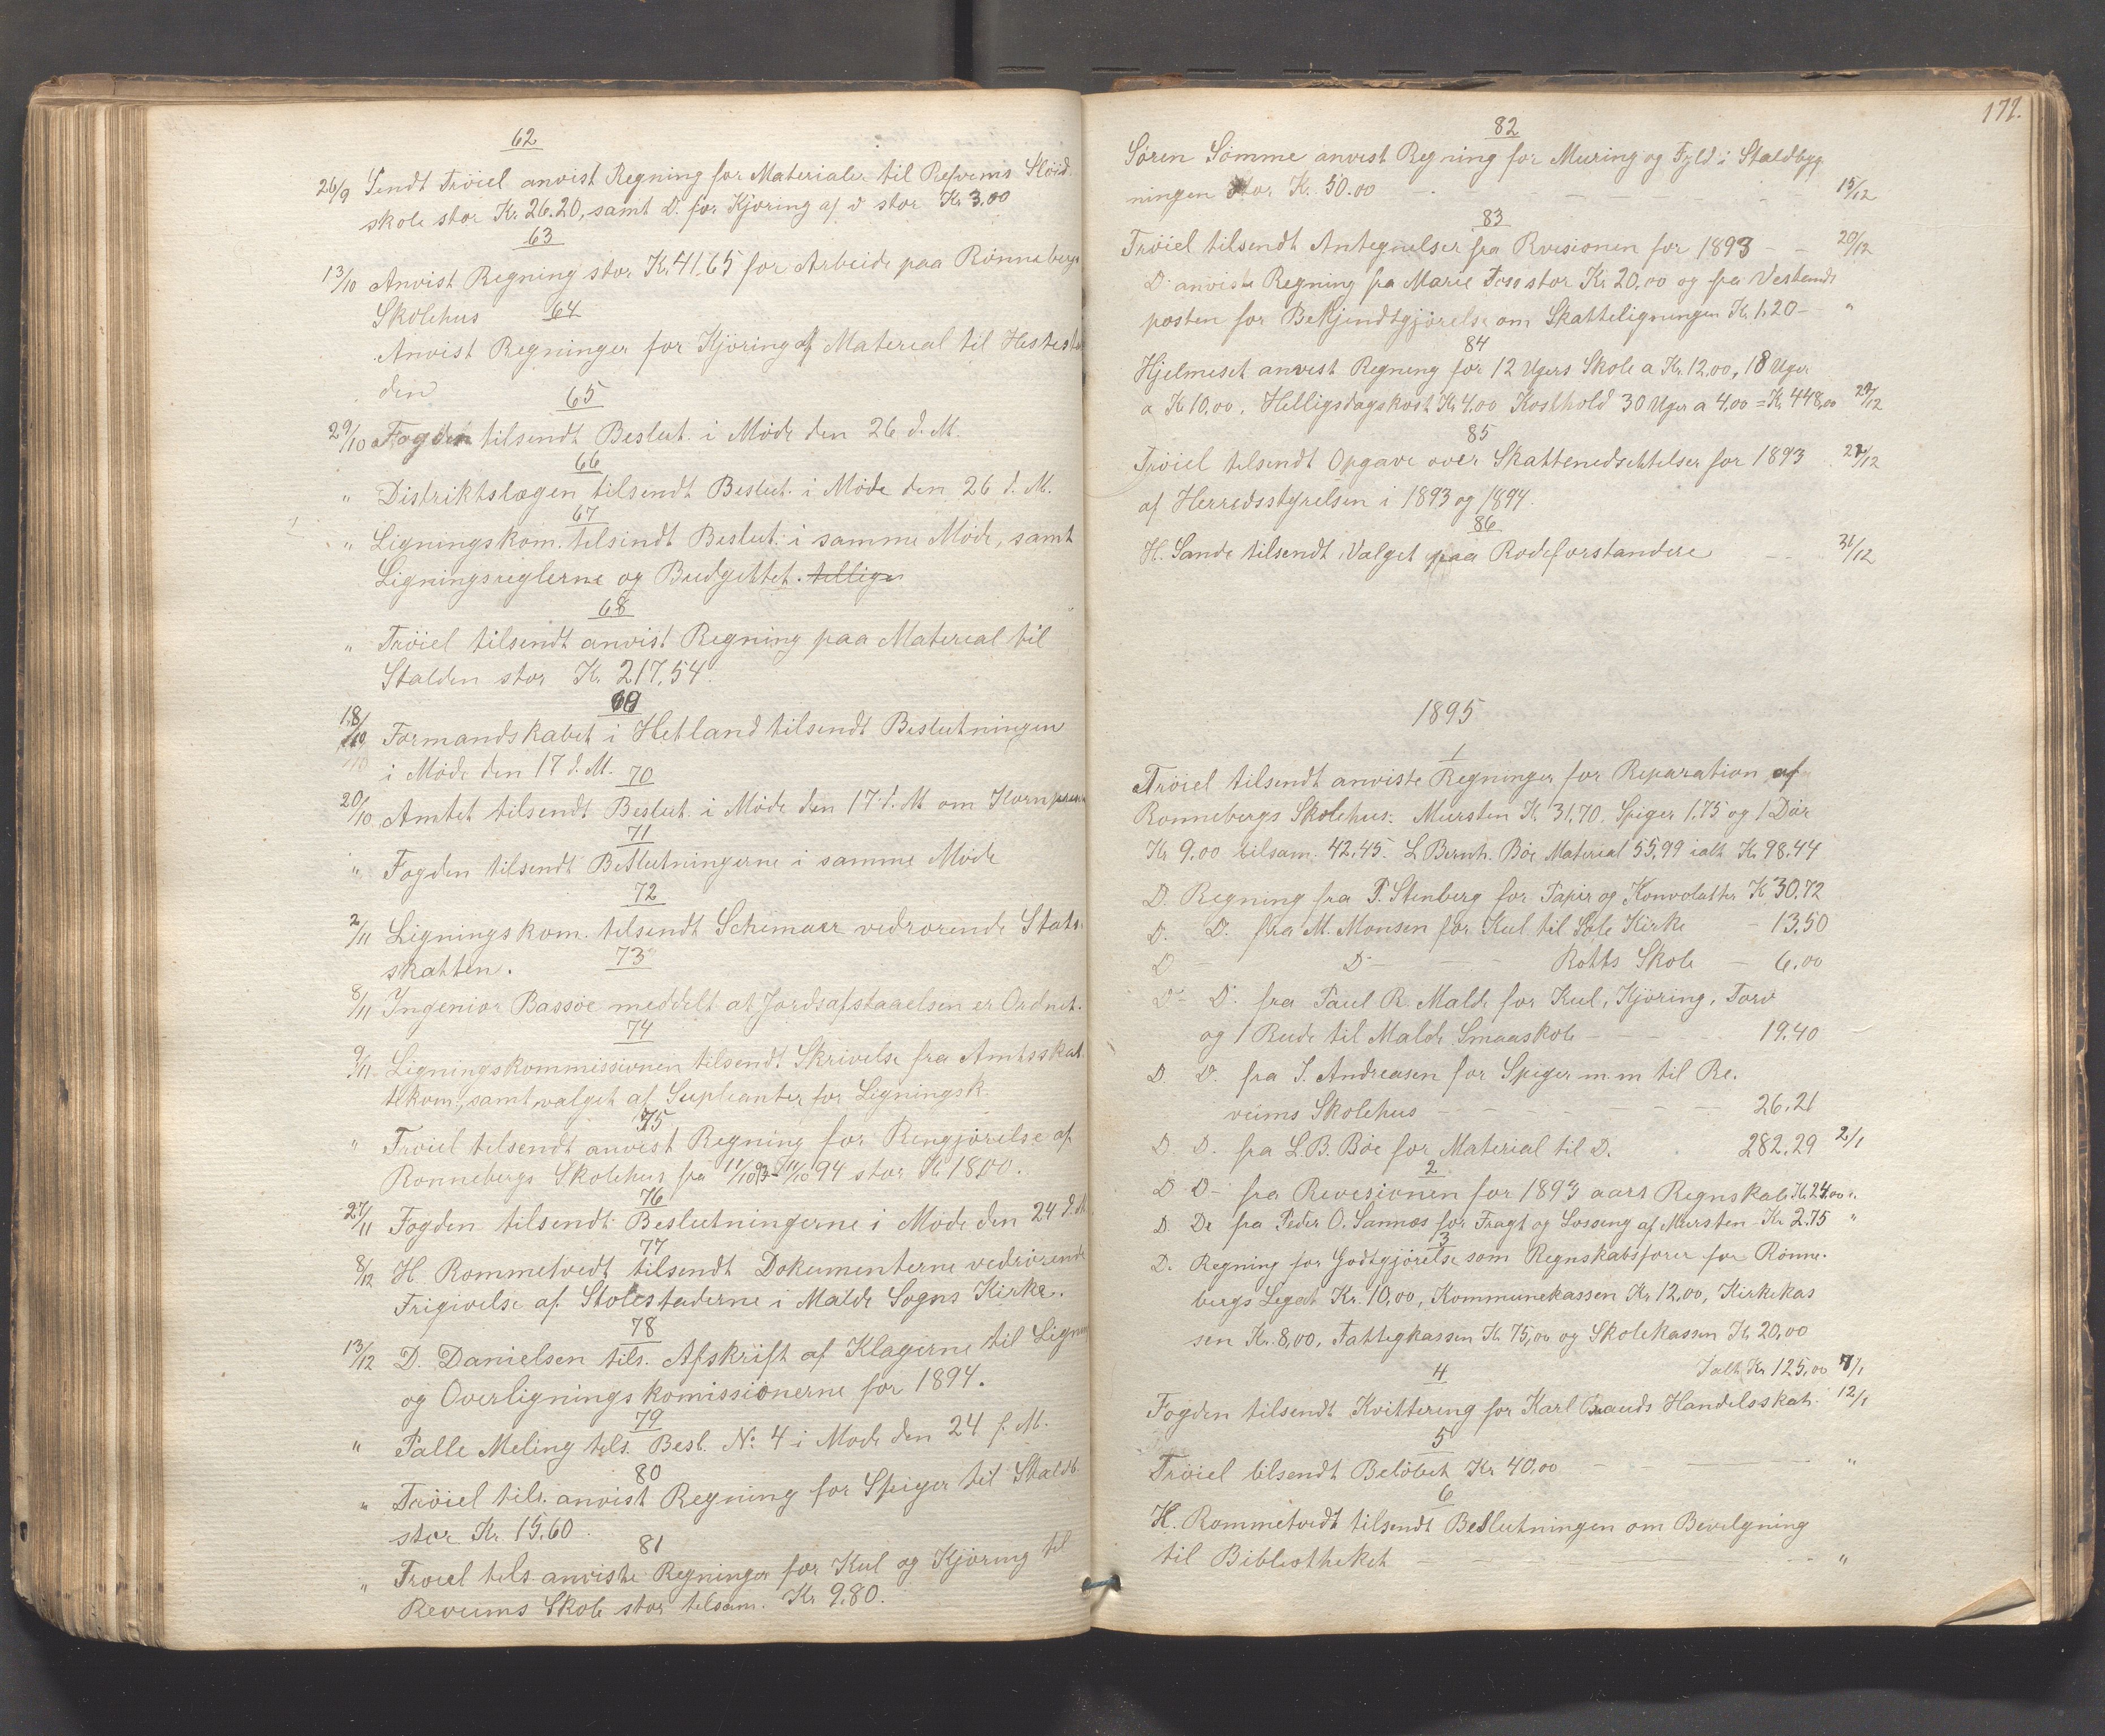 62
26/9 Sendt Tröiel anvist Regning for Materialer til Revems Slöid.
skole stor Kr. 26.20, samt D. for Kjöring af d stor Kr 3.00
63
13/10 Anvist Regning stor Kr. 41.65 for Arbeide paa Rönnebergs
Skolehus
64
Anvist Regninger for Kjöring af Material til Hestestal
den
65
29/10 Fogden tilsendt Beslut. i Möde den 26 d. M.
66
" Distriktslægen tilsendt Beslut. i Möde den 26 d. M.
67
" Ligningskom. tilsendt Beslut. i samme Möde, samt
Ligningsreglerne og Budgettet. tillige
68
" Tröiel tilsendt anvist Regning paa Material til
Stalden stor Kr. 217,54.
69
18/10 Formandskabet i Hetland tilsendt Beslutningen
i Möde den 17 d. M.
70
20/10 Amtet tilsendt Beslut. i Möde den 17 d. M om
71
" Fogden tilsendt Beslutningerne i samme Möde
72
2/11 Ligningskom. tilsendt Schemaer vedrörende Stats.
skatten.
73
8/11 Ingeniör Bassöe meddelt at Jordsafstaaelsen er Ordnet.
74
9/11 Ligningskommissionen tilsendt Skrivelse fra Amtsskat
tekom., samt valget af Supleanter for Ligningsk.
75
" Tröiel tilsendt anvist Regning for Rengjörelse af
Ronnebergs Skolehus fra 11/10 93 - 11/10 94 stor Kr 18,00.
76
27/11 Fogden tilsendt Beslutningerne i Mode den 24 d. M
77
8/12 H. Rommetvedt tilsendt Dokumenterne vedrörende
Frigivelse af Stolestaderne i Malde Sogns Kirke.
78
13/12 D. Danielsen tils. Afskrift af Klagerne til Lign
og Overligningskomissionerne for 1894.
79
" Palle Meling tils. Besl. No 4 i Mode den 24 f. M.
80
" Tröiel tils. anvist Regning for Spiger til Staldb.
stor Kr. 15.60.
81
" Troiel tils. anviste Regninger for Kul og Kjöring til
Reveims Skole stor tilsam. Kr 9.80.
171.
82
Sören Sömme anvist Regning for Muring og Fyld i Staldbyg
ningen stor Kr. 50.00 - 15/12
83
Tröiel tilsendt Antegnelser fra Revisionen for 1893 - - 20/12
D. anviste Regning fra Marie stor Kr 20.00 og fra Vestlands
posten for Bekjendtgjörelse om Skatteligningen Kr. 1.20 - "
84
Hjelmeset anvist Regning för 12 Ugers Skole a Kr. 12.00, 18 Uger
a Kr 10.00, Helligsdagskost Kr 4.00 Kosthold 30 Uger a 4.00 = Kr 448,00 29/12
85
Tröiel tilsendt Opgave over Skattenedsettelser for 1893 29/12
af Herredsstyrelsen i 1893 og 1894.
86
H. Sande tilsendt Valget paa Rodeforstandere - - 31/12
1895
1
Tröiel tilsendt anviste Regninger for Reparation af
Ronnebergs Skolehus. Mursten Kr. 31,70. Spiger 1.75 og 1 Dör
Kr 9.00 tilsam. 42.45. L Bernh. Böe Material 55,99 ialt Kr 98.44
D. Regning fra P. Stenberg for Papir og Konvolutter Kr 30.72
D. D. fra M. Monsen for Kul til Sole Kirke - 13,50
D - D - - Rotts Skole - 6.00
D - D. fra Paul R. Malde for Kul, Kjöring, Torv
og 1 Rude til Malde Smaaskole - - - 19.40
D. D. fra J. Andreasen for Spiger m. m til Re.
veims Skolehus - - - - - 26.21
D. D. fra L. B. Böe for Material til D. 282.29 2/1
2
D D - fra Revisionen for 1893 aars Regnskab Kr. 24.00 ".
D. Do fra Peder O. Sannæs for Fragt og Lossing af Mursten Kr 2.75 "
3
D. Regning for Godtgjörelse som Regnskabsförer for Rönne-
bergs Legat Kr. 10,00, Kommunekassen Kr 12,00, Kirkekas
sen Kr. 8,00, Fattigkassen Kr 75,00 og Skolekassen Kr. 20,00
Ialt Kr 125.00 7/1
4
Fogden tilsendt Kvittering for Karl Handelsskat. 12/1
5
Tröiel tilsendt Belöbet Kr 40.00 - - - "
6
H. Rommetvedt tilsendt Beslutningen om Bevilgning
til Bibliotheket - - - "